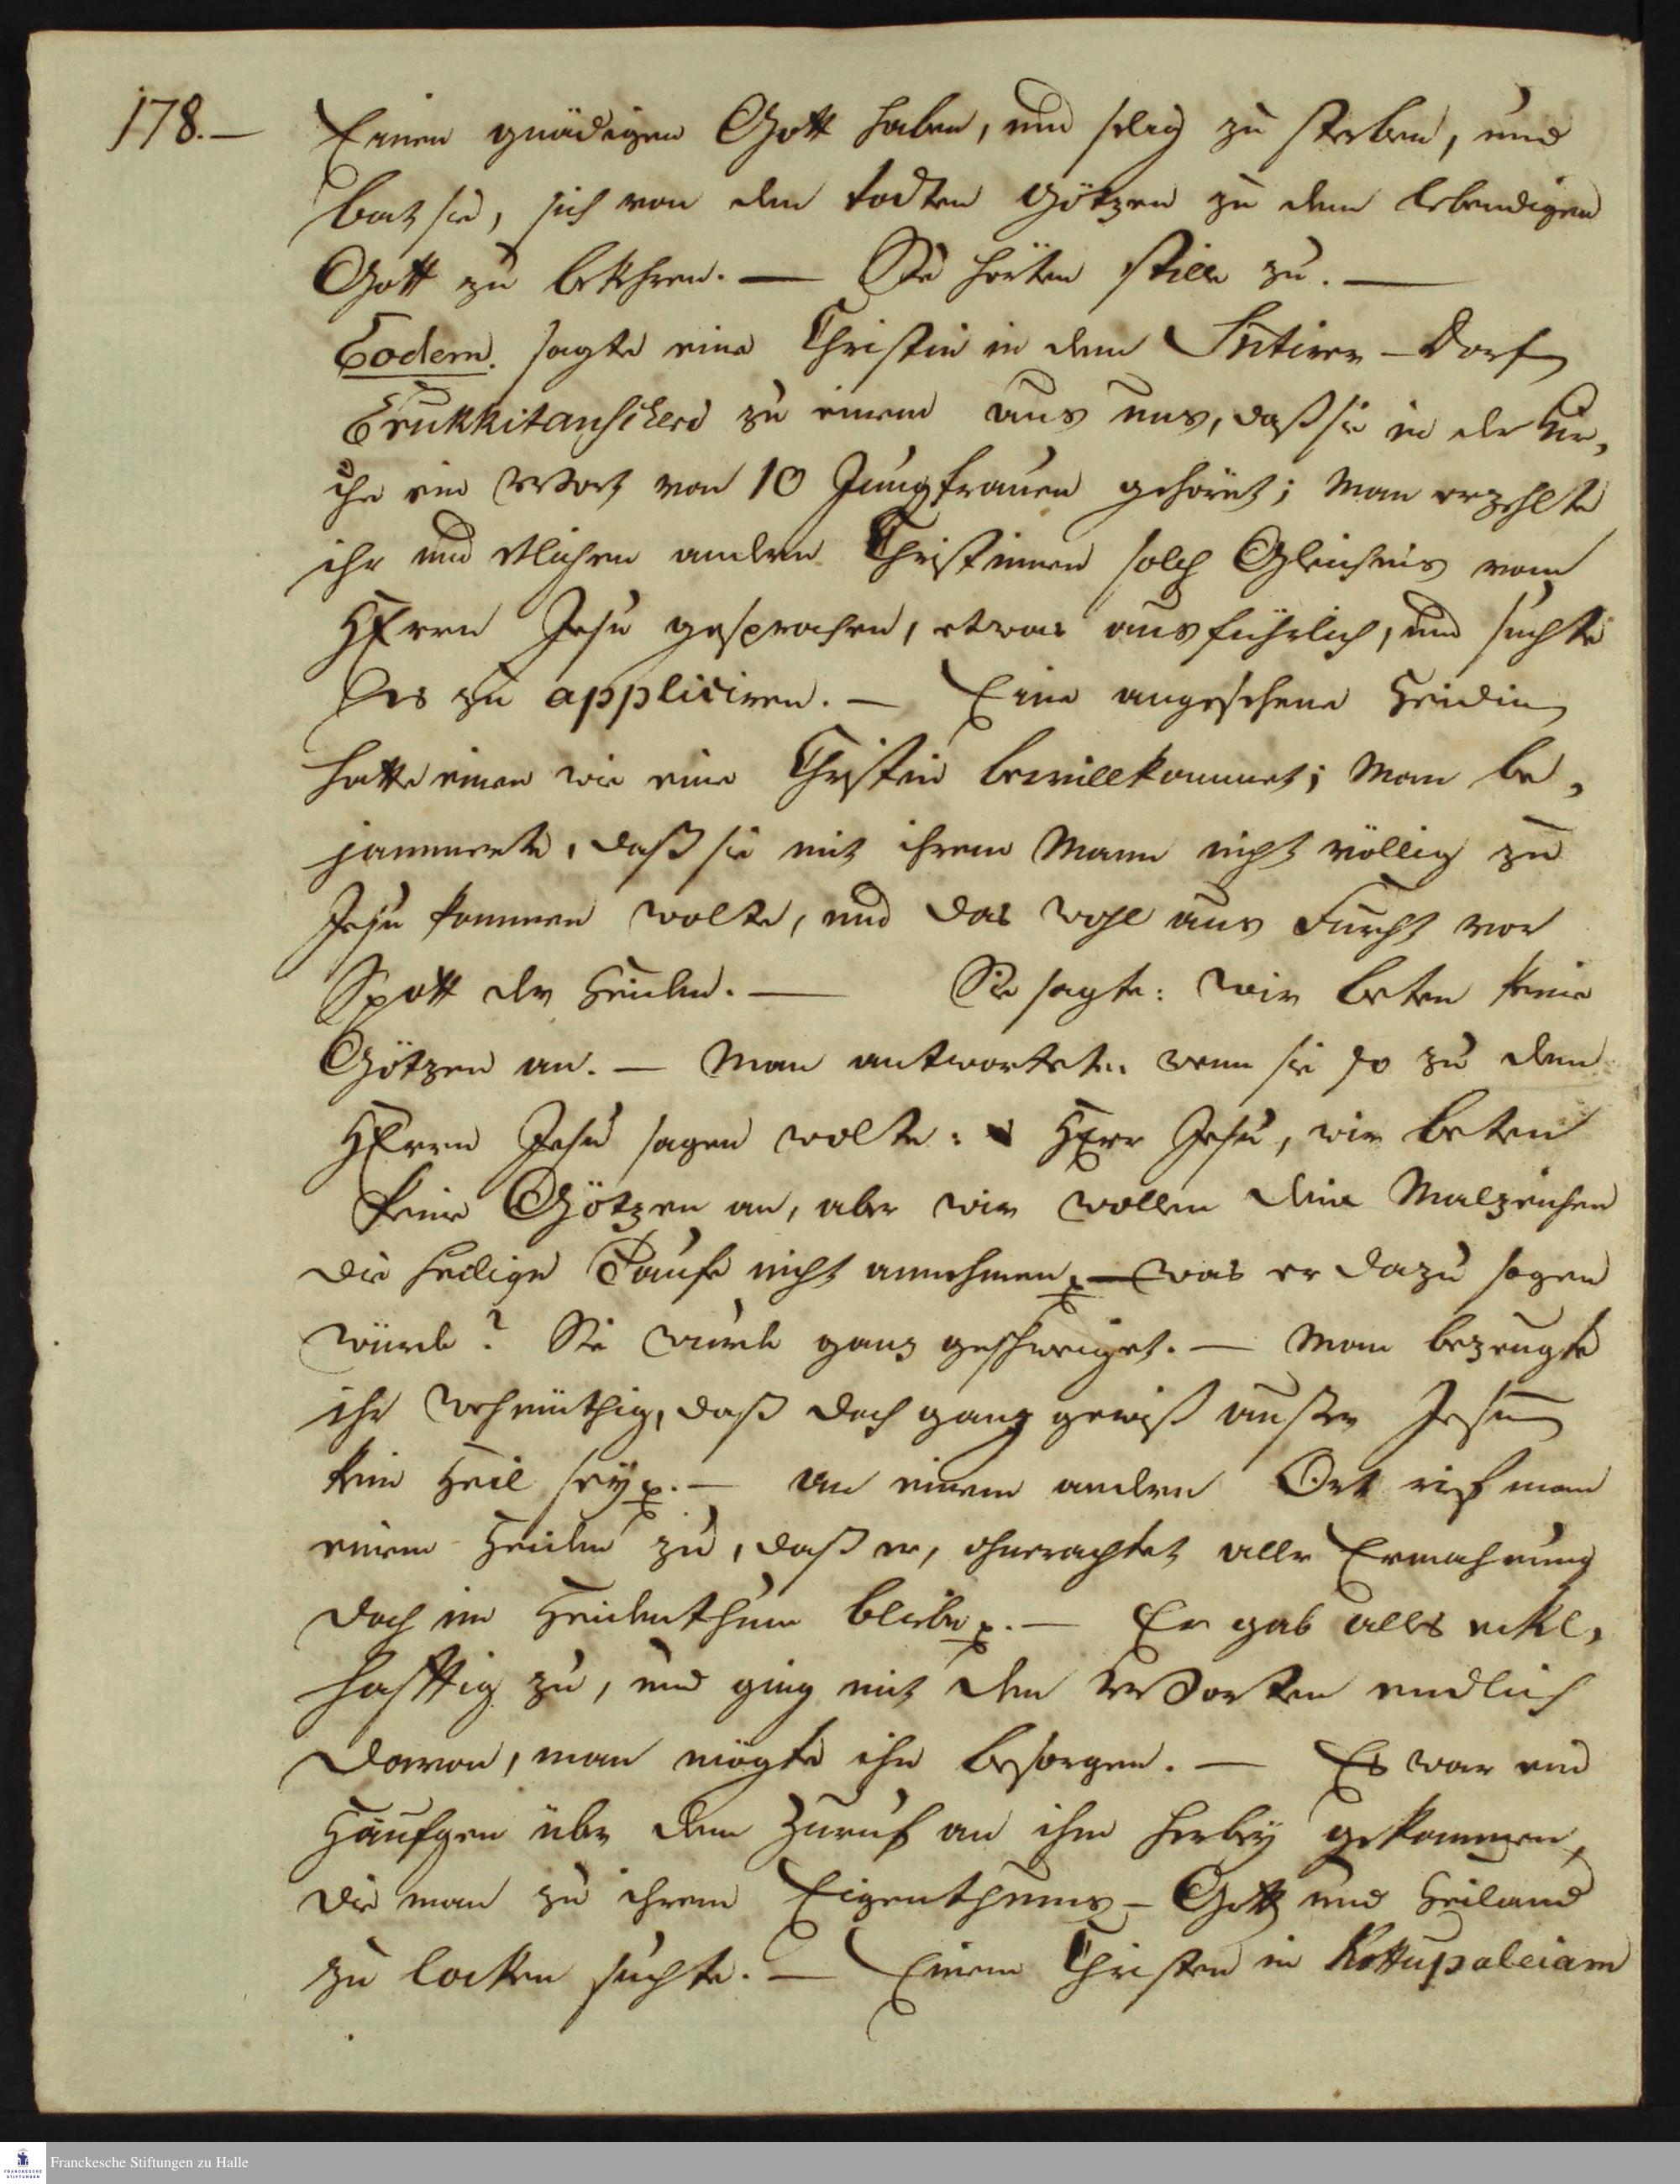 178. — Einen gnädigen Gott haben, und selig zu sterben, und
bat sie, sich von den todten Götzen zu dem lebendigen
Gott zu bekehren. — Sie hörten stille zu. —
Eodem. sagte eine Christin in dem Sutirer-Dorf
Erukkitanscheri zu einem aus uns, daß sie in der Kir,
che ein Wort von 10 Jungfrauen gehöret; Man erzehlte
ihr und etlichen andern Christinnen solch Gleichnis vom
HErrn Jesu gesprochen, etwas ausführlich, und suchte
es zu appliciren. — Eine angesehene Heidin
hatte einen wie eine Christin bewillkommet; Man be,
jammerte, daß sie mit ihrem Mann nicht völlig zu
Jesu kommen wolte, und das wohl aus Furcht vor
Spott der Heiden. — Sie sagte: wir beten keine
Götzen an. — Man antwortete: wenn sie so zu dem
HErrn Jesu sagen wolte: HErr Jesu, wir beten
keine Götzen an, aber wir wollen dein Malzeichen
die heilige Taufe nicht annehmen, — was er dazu sagen
würde? Sie wurde ganz geschweiget. — Man bezeugte
ihr wehmüthig, daß doch ganz gewiß ausser Jesum
kein Heil sey. — An einem andern Ort rief man
einem Heiden zu, daß er, ohnerachtet aller Ermahnung
doch im Heidenthum bliebe. — Er gab alles ekel,
hafftig zu, und ging mit den Worten endlich
davon, man mögte ihn besorgen. — Es war ein
Häufgen über dem Zuruf an ihn herbey gekommen,
die man zu ihrem Eigenthums-Gott und Heiland
zu locken suchte. — Einem Christen in Kottupaleiam
Franckesche Stiftungen zu Halle